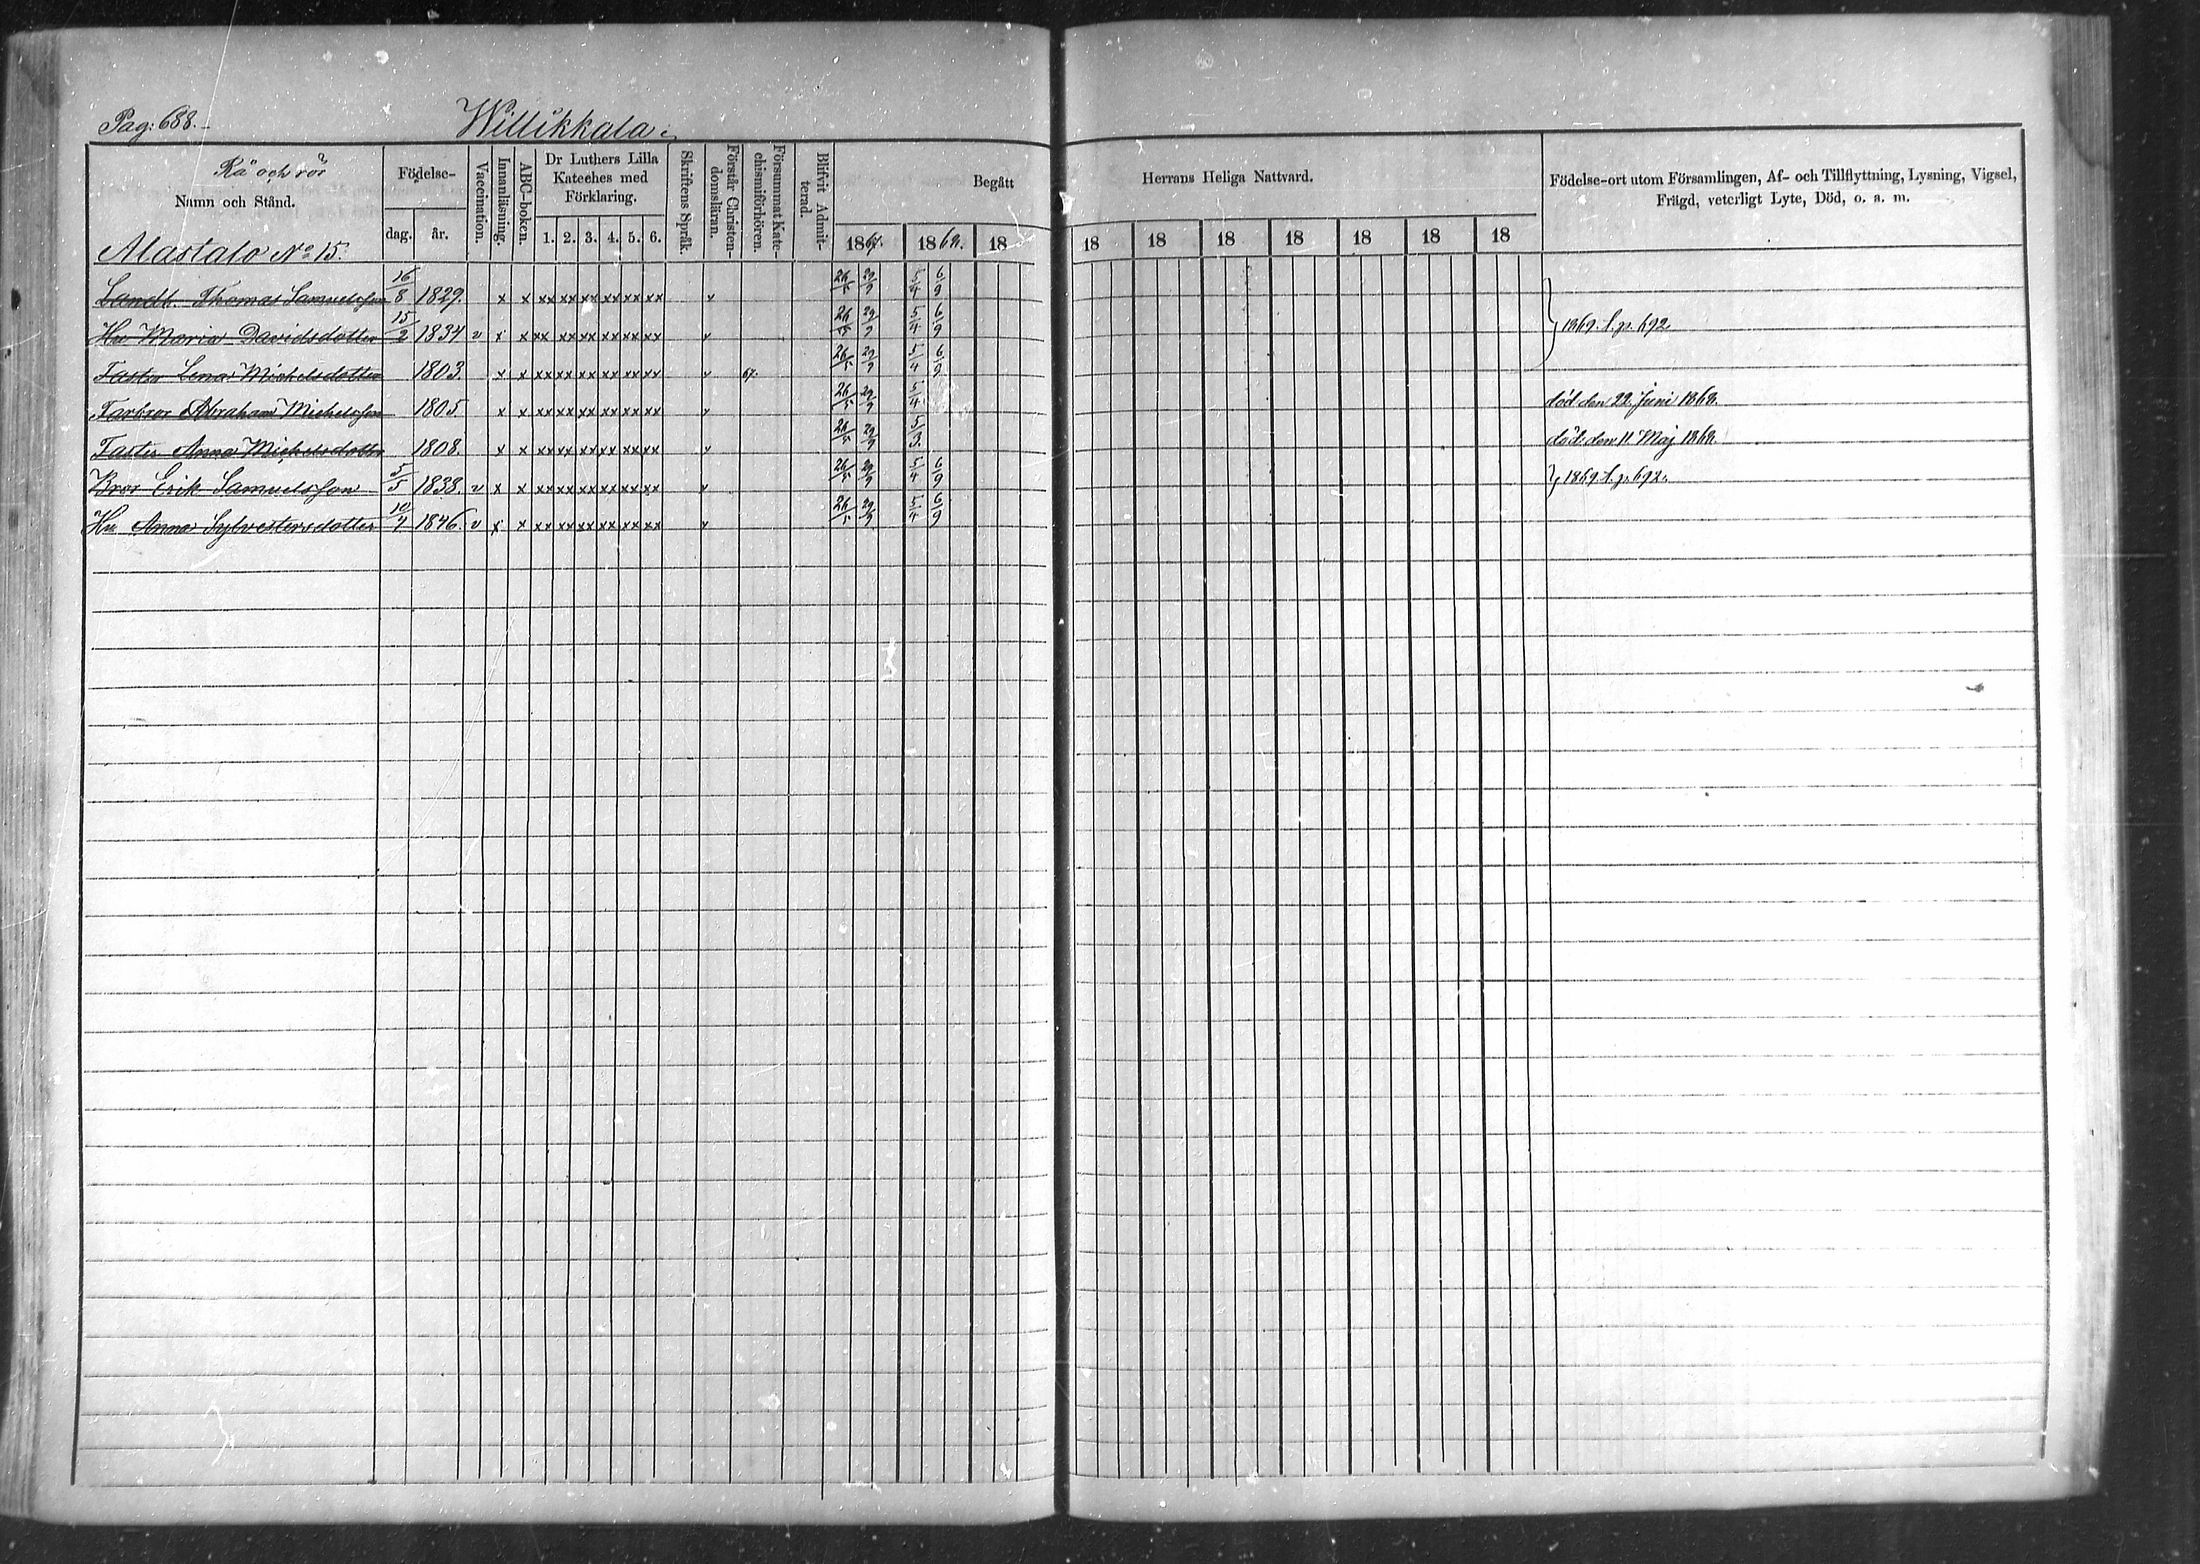 Pag: 688.
Willikkala
Rå och rör
Namn och Stånd.
Födelse-
dag. år.
Vaccination.
Innanläsning.
ABC-boken.
Dr Luthers Lilla
Kateches med
Förklaring.
1. 2. 3. 4. 5. 6.
Skriftens Språk.
Förstår Christen-
domsläran.
Försummat Kate-
chismiförhören.
Blifvit Admit-
terad.
Begått
Herrans Heliga Nattvard.
1867. 1868. 18 18 18 18 18 18 18 18
Födelse-ort utom Församlingen, Af- och Tillflyttning, Lysning, Vigsel,
Frägd, veterligt Lyte, Död, o. a. m.
Mastalo No 15.
Landb. Thomas Samuelsson 16/8 1829. x x xx xx xx xx xx xx v 26/5 29/9 5/4 6/9
Hu Maria Davidsdotter 15/2 1834 v x x xx xx xx xx xx xx v 26/5 29/9 5/4 6/9 1869. f. p. 692.
Faster Lena Michelsdotter 1803. x x xx xx xx xx xx xx v 67. 26/5 29/9 5/4 6/9
Farbror Abraham Michelsson 1805. x x xx xx xx xx xx xx v 26/5 29/9 5/4 död den 22. Juni 1868.
Faster Anna Michelsdotter 1808. x x xx xx xx xx xx xx v 26/5 29/9 5/3. död den 11. Maj 1868.
Bror Erik Samuelsson 5/5 1838. v x x xx xx xx xx xx xx v 26/5 29/9 5/4 6/9 1869. f. p. 692.
Hu Anna Sylvestersdotter 10/4 1846. v x x xx xx xx xx xx xx v 26/5 29/9 5/4 6/9